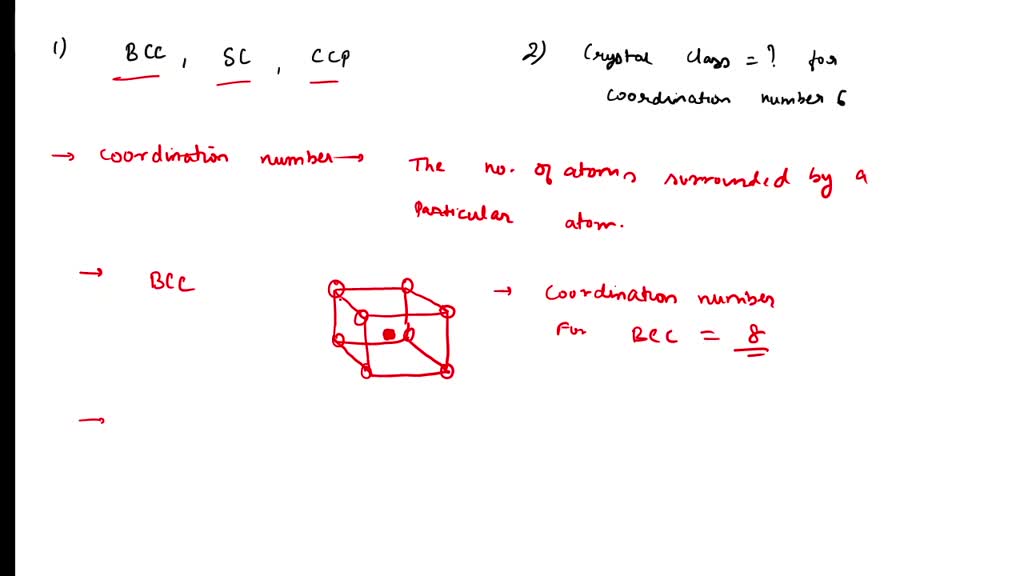 1) BCC, SC, CCP
2) Crystal class = ? for
coordination number 6
→ coordination number → The no. of atoms surrounded by a
particular atom.
→ BCC
→ coordination number
For BCC = 8
→